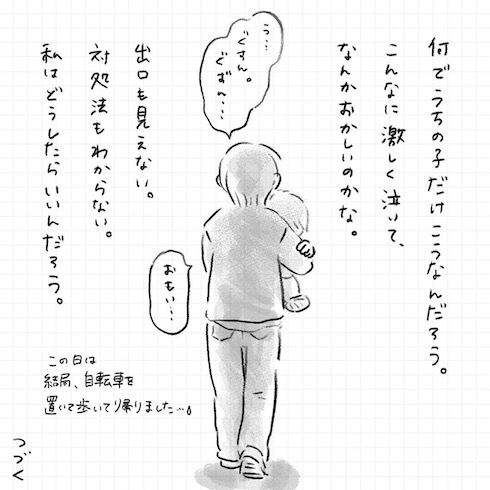 何でうちの子だけこうなんだろう。
こんなに激しく泣いて、
なんかおかしいのかな。
う…
ぐすん。
ぐずん…
出口も見えない。
対処法もわからない。
私はどうしたらいいんだろう。
おもい…
この日は
結局、自転車を
置いて歩いて帰りました…。
つづく